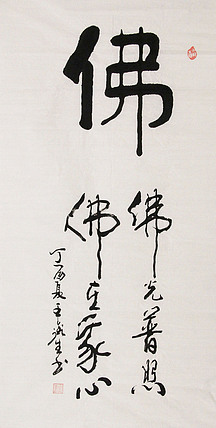 佛
佛光普照
佛在我心
丁酉夏王生书